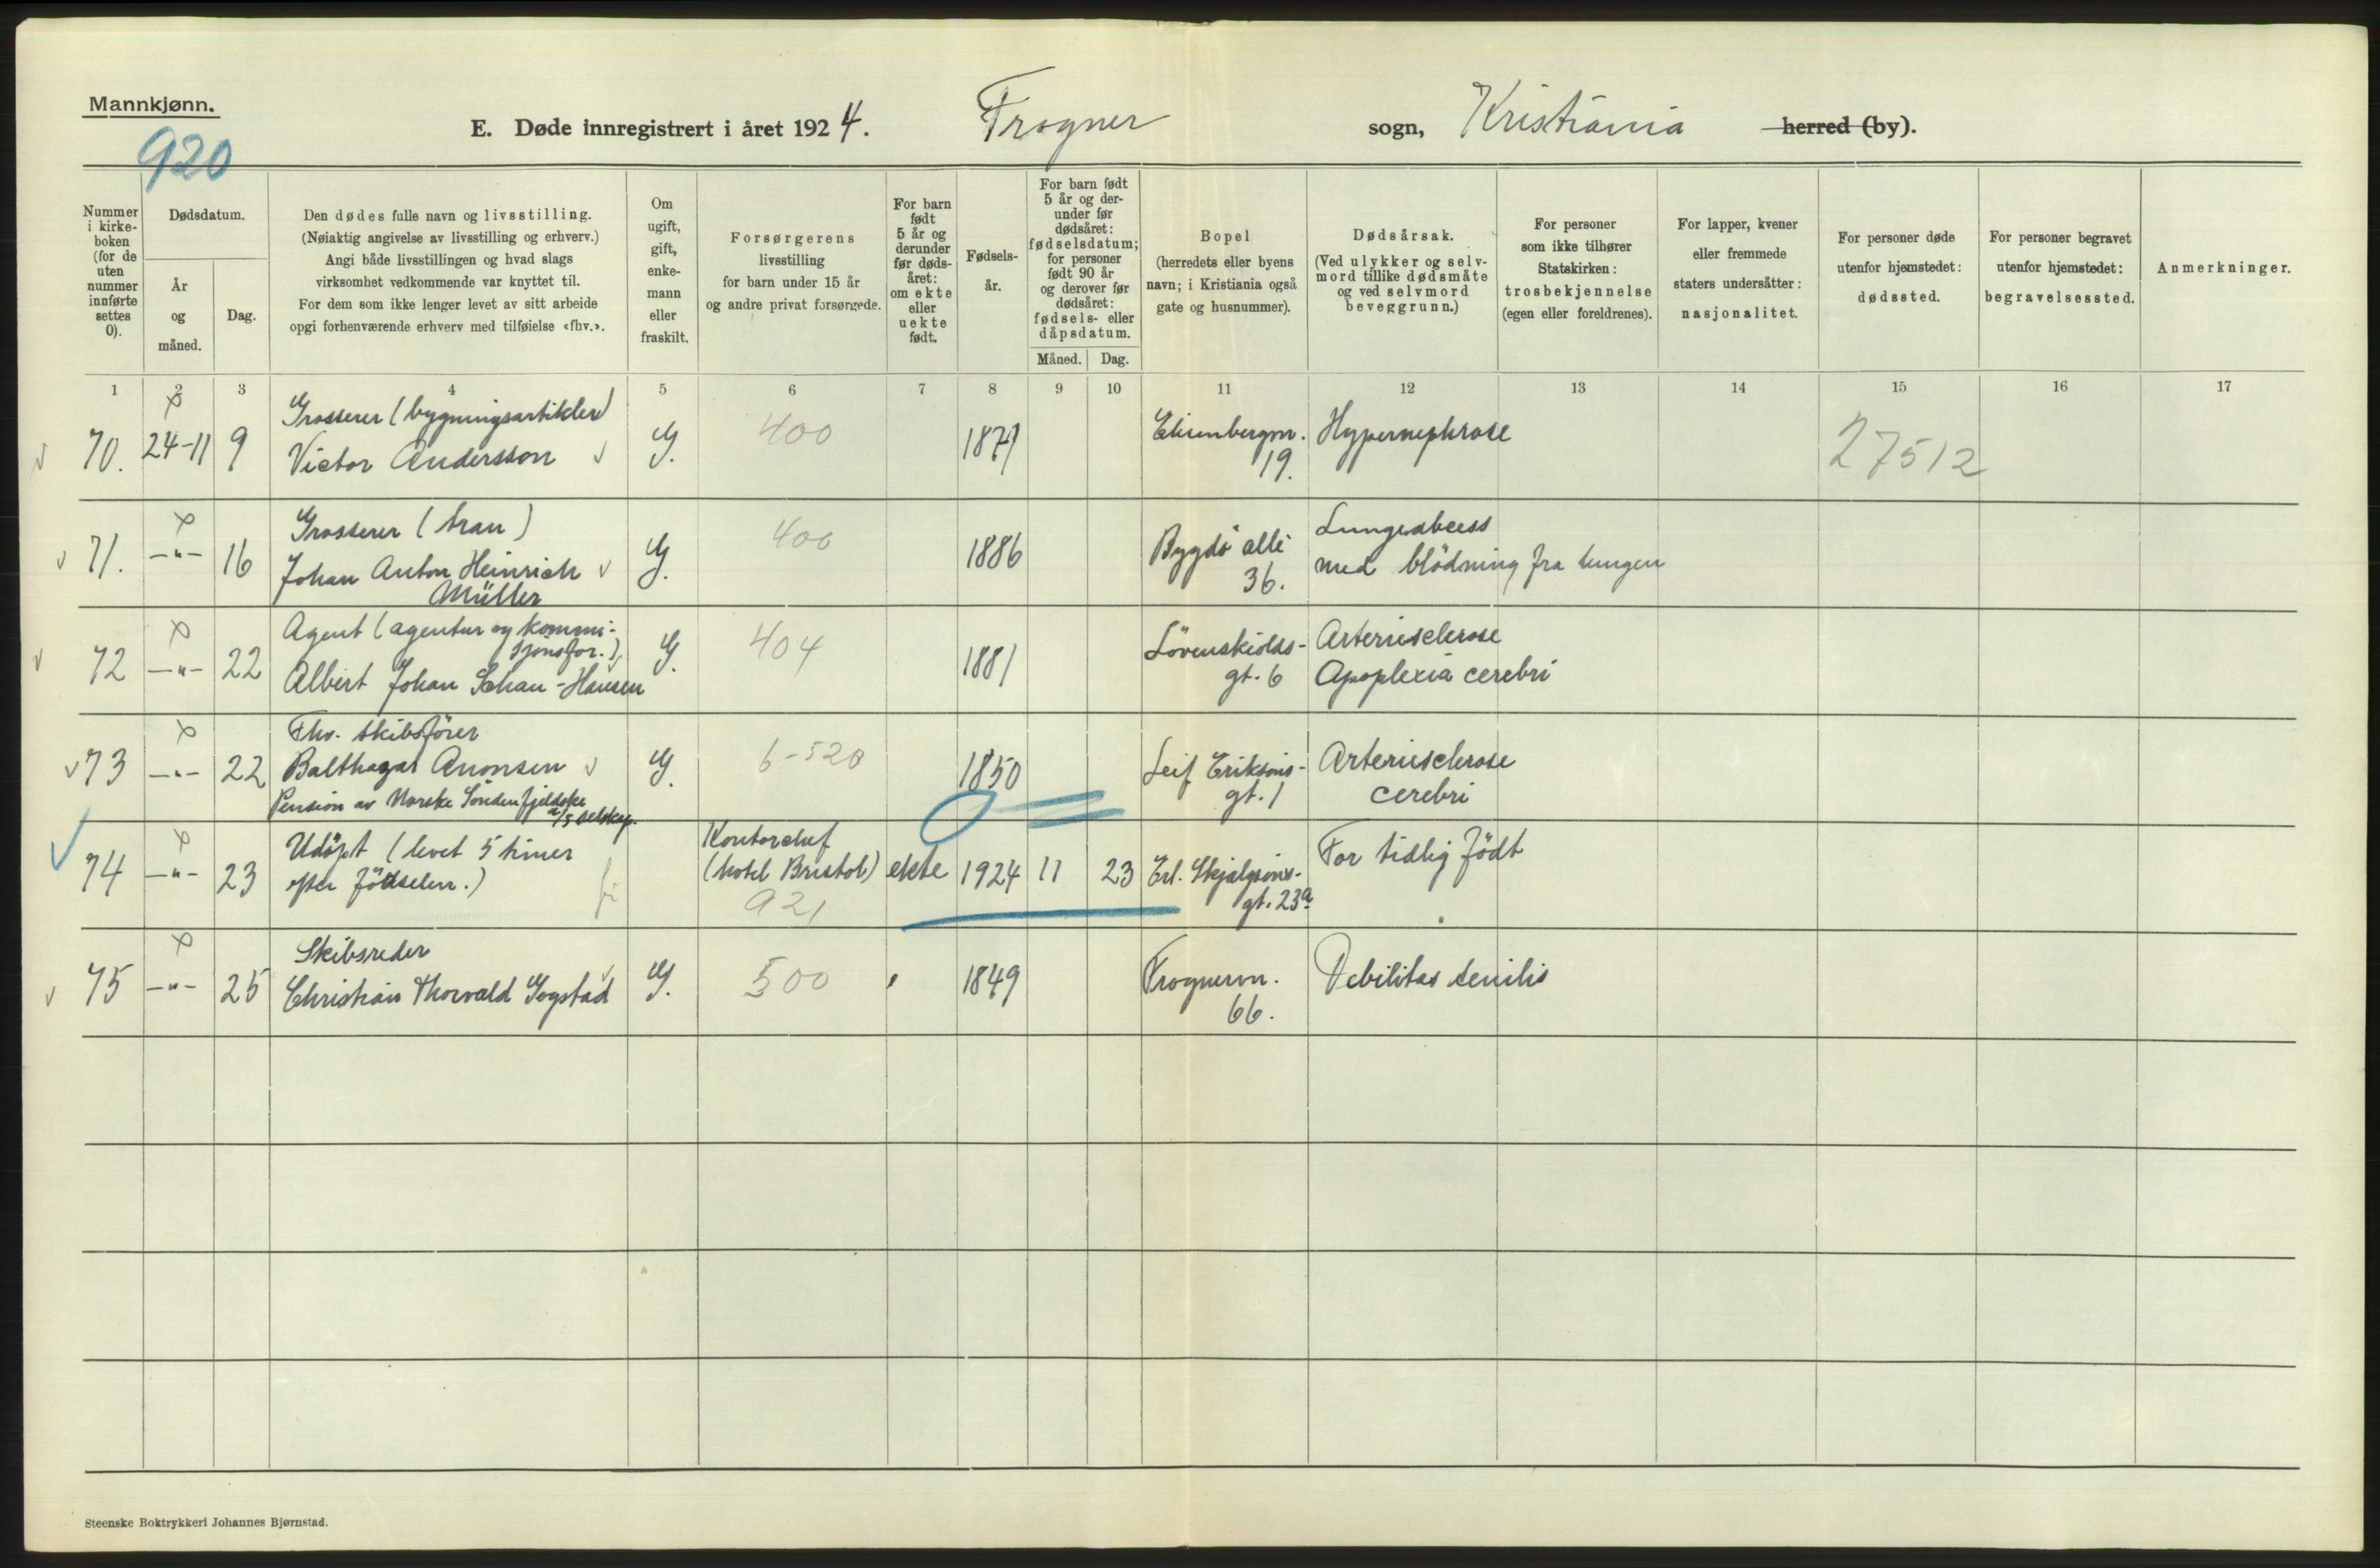 Mannkjønn.
920
E. Døde innregistrert i året 1924. Frogner sogn, Kristiania herred (by).
Nummer i kirke-boken (for de uten nummer innførte settes 0).
Dødsdatum.
År og måned.
Dag.
Den dødes fulle navn og livsstilling.
(Nøiaktig angivelse av livsstilling og erhverv.)
Angi både livsstillingen og hvad slags
virksomhet vedkommende var knyttet til.
For dem som ikke lenger levet av sitt arbeide
opgi forhenværende erhverv med tilføielse «fhv.».
Om ugift, gift, enke-mann eller fraskilt.
Forsørgerens
livsstilling
for barn under 15 år
og andre privat forsørgede.
For barn født 5 år og derunder før døds-året: om ekte eller uekte født.
Fødsels-år.
For barn født 5 år og der-under før dødsåret: fødselsdatum; for personer født 90 år og derover før dødsåret: fødsels- eller dåpsdatum.
Måned. Dag.
Bopel
(herredets eller byens
navn; i Kristiania også
gate og husnummer).
Dødsårsak.
(Ved ulykker og selv-
mord tillike dødsmåte
og ved selvmord
beveggrunn.)
For personer
som ikke tilhører
Statskirken:
trosbekjennelse
(egen eller foreldrenes).
For lapper, kvener
eller fremmede
staters undersåtter:
nasjonalitet.
For personer døde
utenfor hjemstedet:
dødssted.
For personer begravet
utenfor hjemstedet:
begravelsessted.
Anmerkninger.
1 2 3 4 5 6 7 8 9 10 11 12 13 14 15 16 17
Grosserer (bygningsartikler)
70. 24-11 9 Victor Andersson G. 400 1871 19. Hypernephrose 27512
Grosserer (tran)
71. -"- 16 Johan Anton Heinrich Müller G. 400 1886 Bygdö allé 36. Lungeabcess
med blödning fra lungen
Agent (agentur og kommi-
sjonsfor.)
72 -"- 22 Albert Johan Schau-Hansen G. 404 1881 Lövenskiolds-
gt. 6 Arteriesclerose
Apoplexia cerebri
Fhv. skibsförer
73 -"- 22 Balthazar Aronsen G. 6-520 1850 Leif Eriksøns-
gt. 1 Arteriesclerose
cerebri
Pension av Norske Söndenfjeldske
74 -"- 23 Udöpt (levet 5 timer
efter födselen.) Kontorchef
(hotel Bristol) 921 ekte 1924 11 23 Erl. Skjalgsöns-
gt. 23a For tidlig födt
Skibsreder
75 -"- 25 Christian Thorvald Gogstad G. 500 1849 Frognervn.
66. Debilitas senilis
Steenske Boktrykkeri Johannes Bjørnstad.